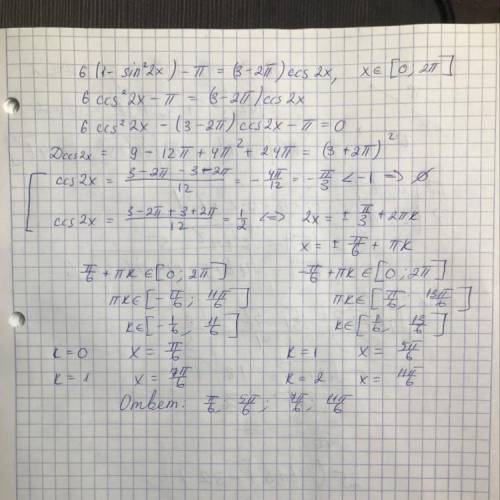 6 (1 - sin²2x) - π = (3 - 2π) cos 2x, x ∈ [0, 2π]
6 cos²2x - π = (3 - 2π) cos 2x
6 cos²2x - (3 - 2π) cos 2x - π = 0
Dcos2x = 9 - 12π + 4π² + 24π = (3 + 2π)²
cos 2x = (3 - 2π - 3 - 2π)/12 = -4π/12 = -π/3 < -1 => ∅
cos 2x = (3 - 2π + 3 + 2π)/12 = 1/2 <=> 2x = ± π/3 + 2πk
x = ± π/6 + πk
π/6 + πk ∈ [0; 2π] -π/6 + πk ∈ [0; 2π]
πk ∈ [-π/6; 11π/6] πk ∈ [π/6; 13π/6]
k ∈ [-1/6; 11/6] k ∈ [1/6; 13/6]
k = 0 x = π/6 k = 1 x = 5π/6
k = 1 x = 7π/6 k = 2 x = 11π/6
Ответ: π/6; 5π/6; 7π/6; 11π/6